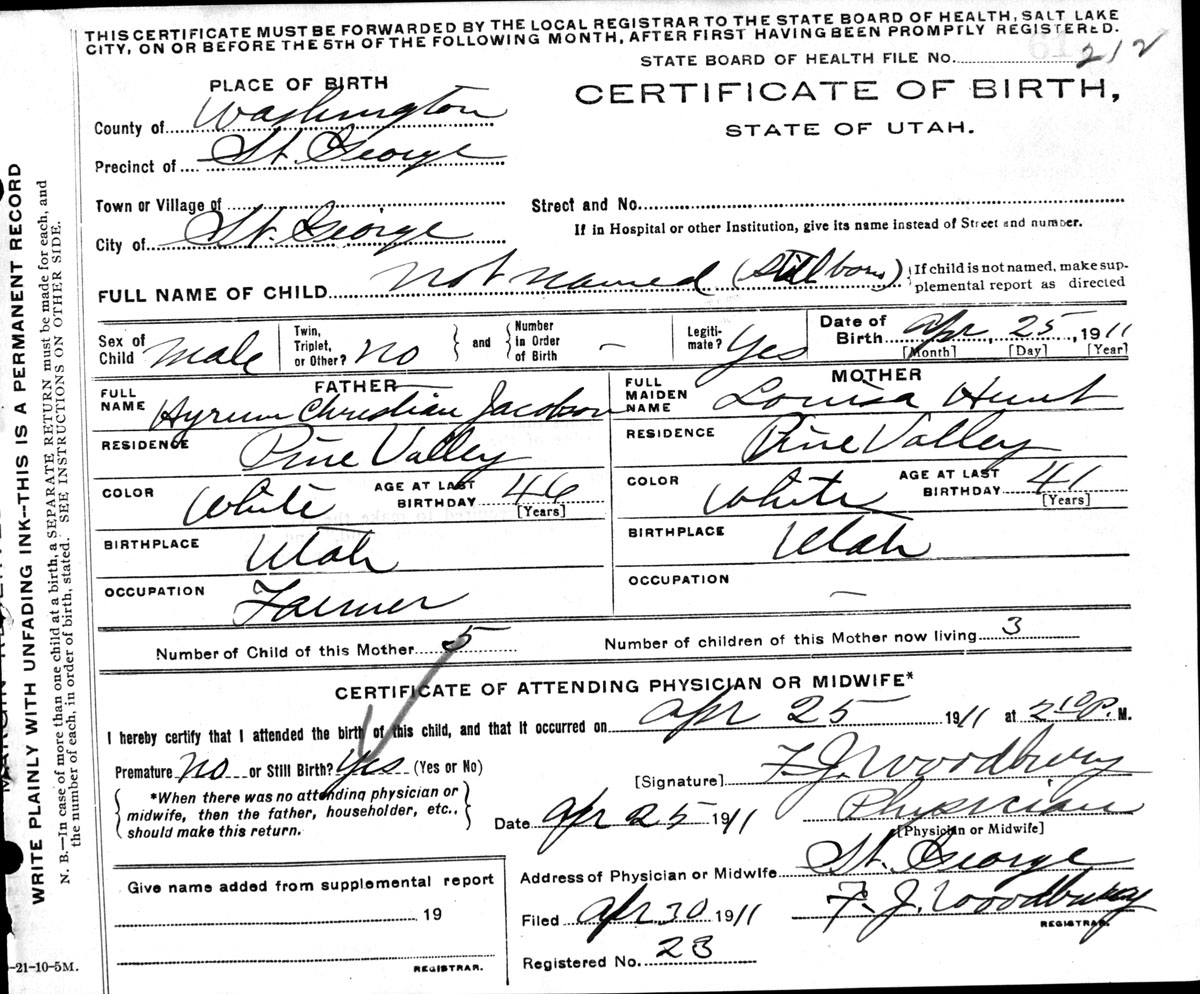 THIS CERTIFICATE MUST BE FORWARDED BY THE LOCAL REGISTRAR TO THE STATE BOARD OF HEALTH, SALT LAKE
CITY, ON OR BEFORE THE 5TH OF THE FOLLOWING MONTH, AFTER FIRST HAVING BEEN PROMPTLY REGISTERED.
STATE BOARD OF HEALTH FILE No. 212
PLACE OF BIRTH
CERTIFICATE OF BIRTH,
STATE OF UTAH.
County of Washington
Precinct of St. George
Town or Village of
Street and No.
City of St. George
If in Hospital or other Institution, give its name instead of Street and number.
FULL NAME OF CHILD not named (Still born) If child is not named, make sup-
plemental report as directed
Sex of Child Male
Twin, Triplet, or Other? No
and Number in Order of Birth –
Legiti-mate? Yes
Date of Birth Apr, 25, 1911
[Month] [Day] [Year]
FATHER
MOTHER
FULL NAME Hyrum Christian Jacobson
FULL MAIDEN NAME Louisa Hunt
RESIDENCE Pine Valley
RESIDENCE Pine Valley
COLOR White AGE AT LAST BIRTHDAY 46 [Years]
COLOR White AGE AT LAST BIRTHDAY 41 [Years]
BIRTHPLACE Utah
BIRTHPLACE Utah
OCCUPATION Farmer
OCCUPATION –
Number of Child of this Mother 5
Number of children of this Mother now living 3
CERTIFICATE OF ATTENDING PHYSICIAN OR MIDWIFE*
I hereby certify that I attended the birth of this child, and that it occurred on Apr 25 1911 at 2 10 P. M.
Premature No or Still Birth? Yes (Yes or No)
[Signature] F. J. Woodbury
*When there was no attending physician or
midwife, then the father, householder, etc.,
should make this return.
Date Apr 25 1911
Physician
[Physician or Midwife]
Give name added from supplemental report
19
REGISTRAR.
Address of Physician or Midwife St. George
Filed Apr 30 1911
F. J. Woodbury
REGISTRAR.
Registered No. 23
WRITE PLAINLY WITH UNFADING INK—THIS IS A PERMANENT RECORD
N. B.—In case of more than one child at a birth, a SEPARATE RETURN must be made for each, and
the number of each, in order of birth, stated. SEE INSTRUCTIONS ON OTHER SIDE.
-21-10-5M.